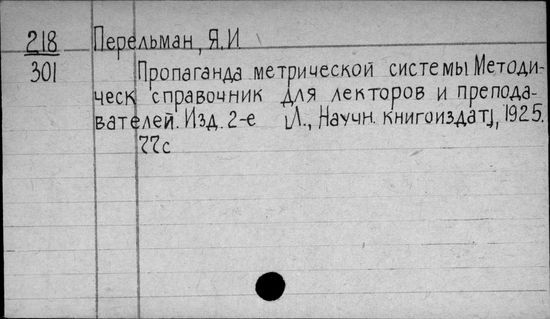 218 Перельман, Я.И
301 Пропаганда метрической системы Методи-
ческ справочник для лекторов и препода-
вателей. Изд. 2-е [Л., Научн. книгоиздат], 1925.
77с